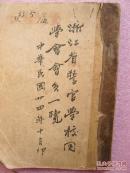 浙江省警官学校同
学會會員一覽
中華民國廿四年十月印